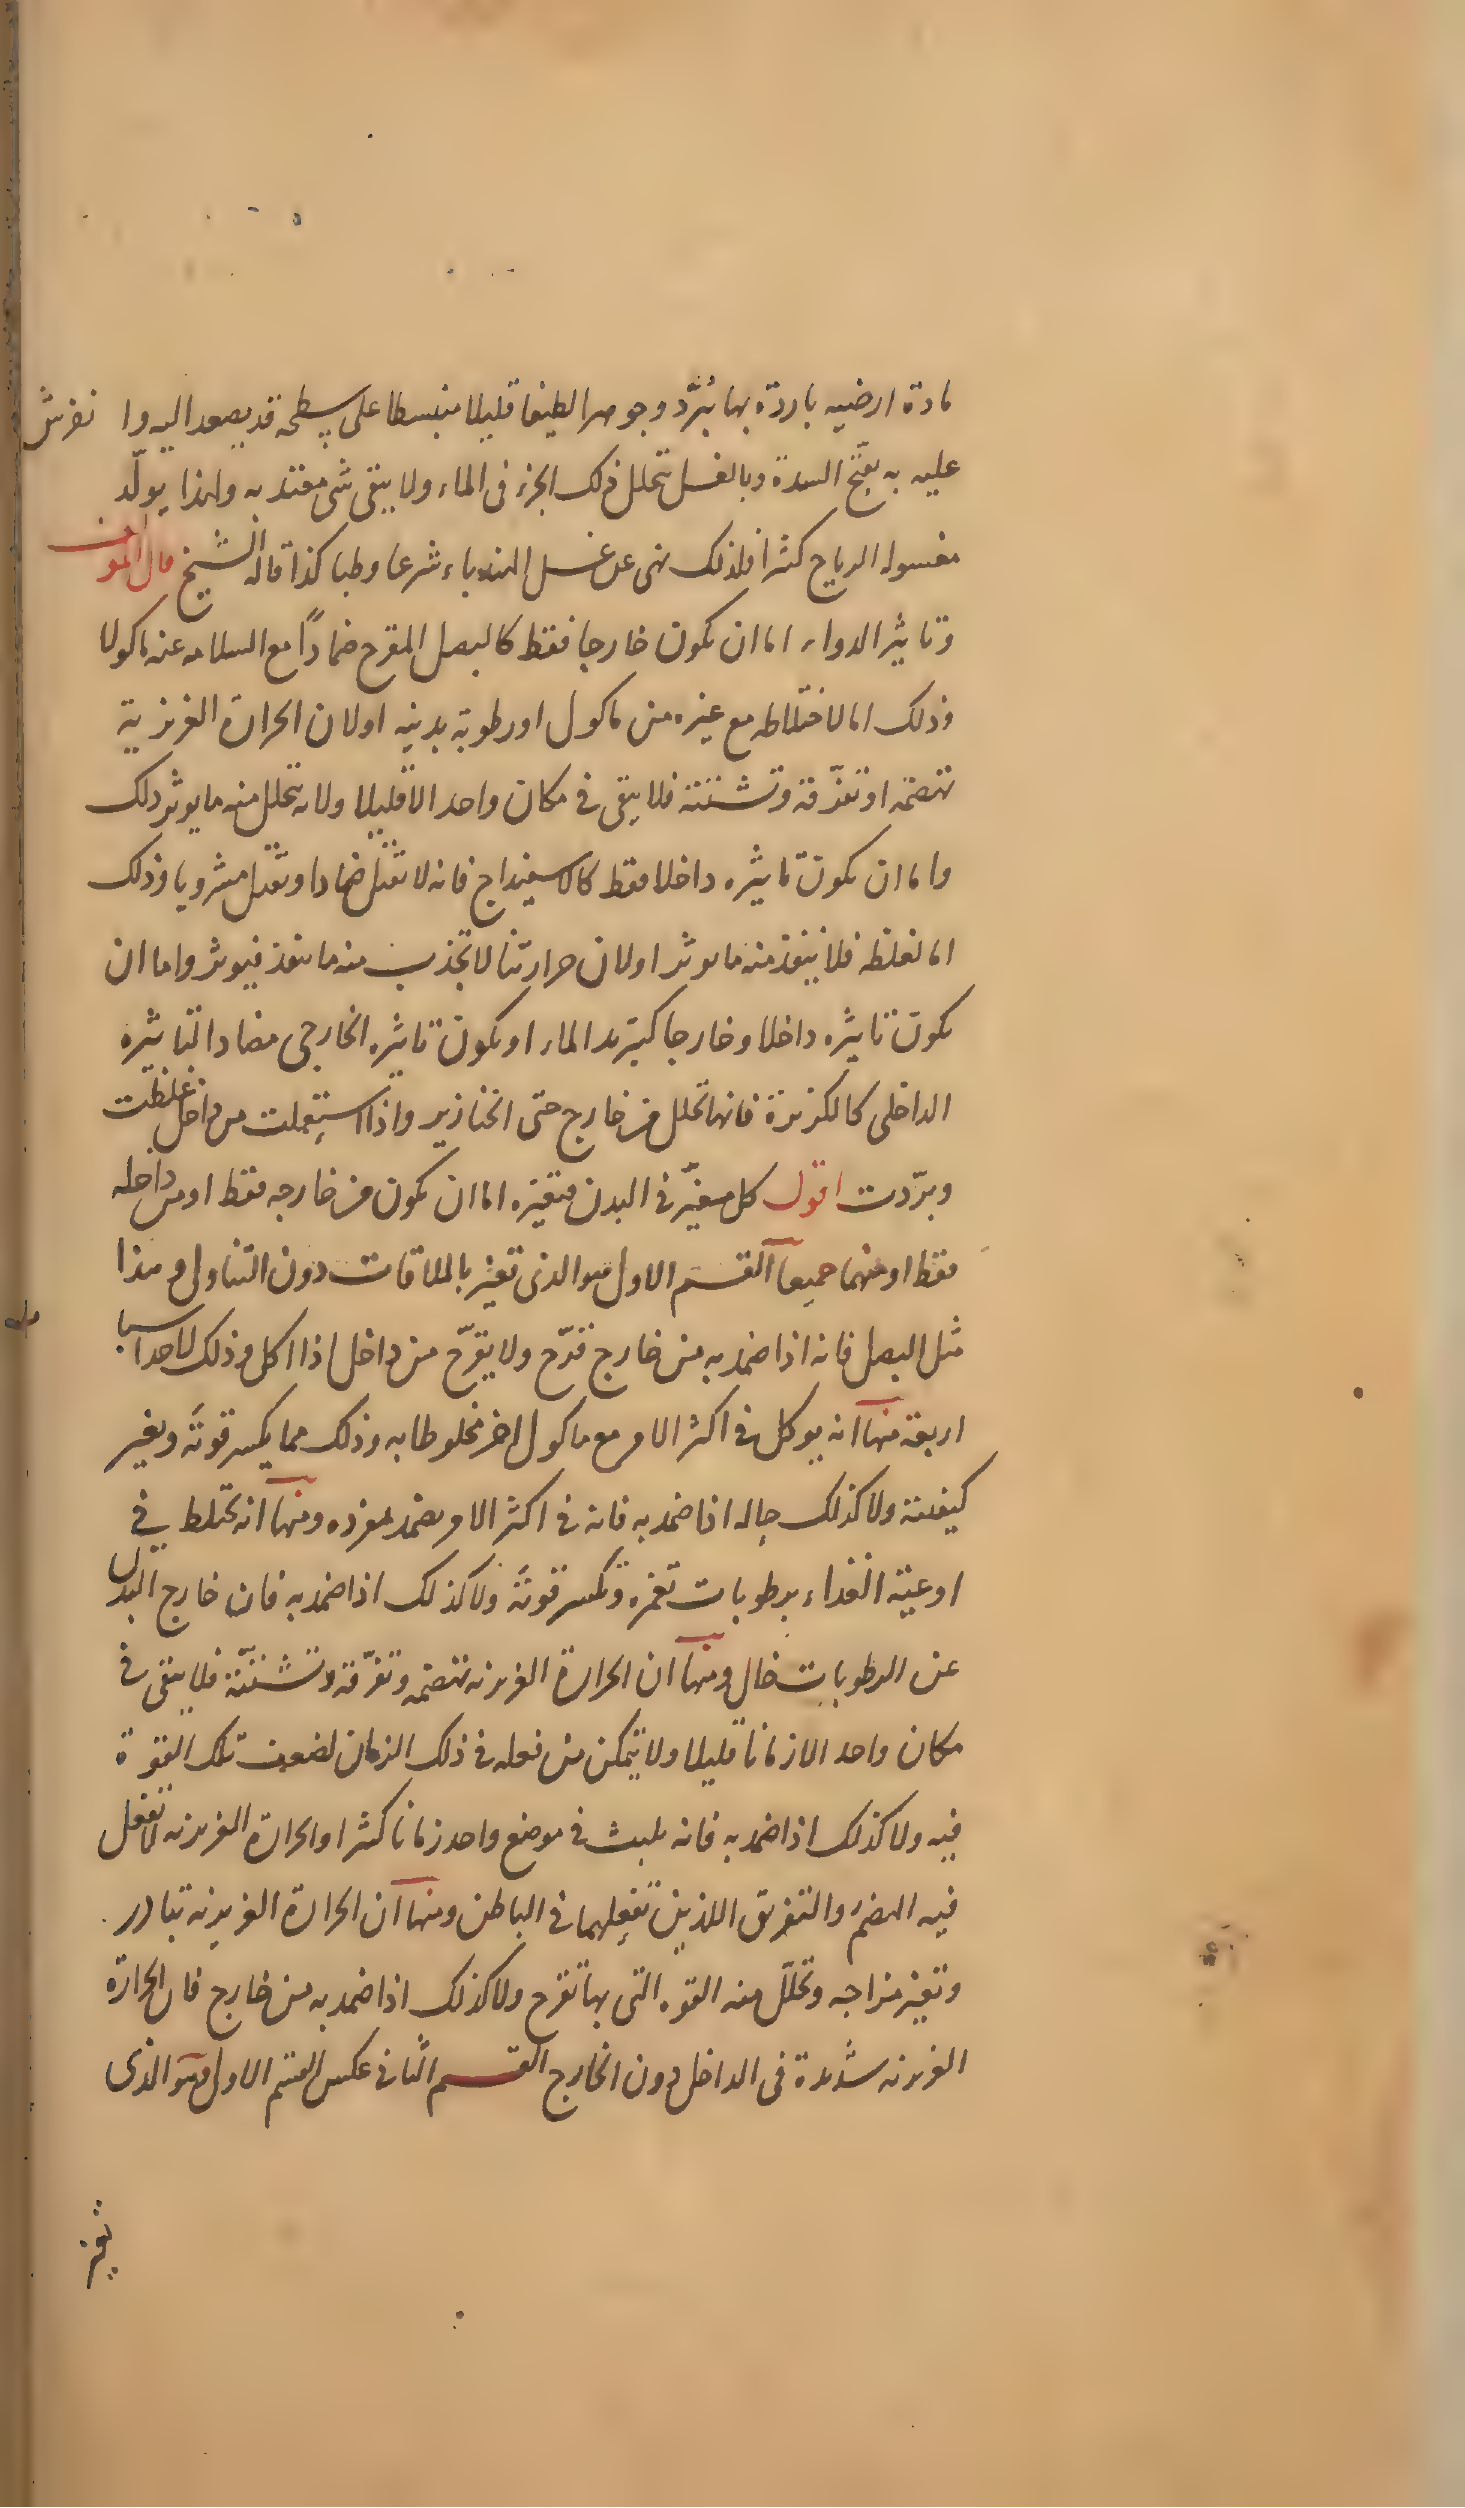 مادة ارضيه باردة بها تُبرّد وجوهرا لطيفا قليلا منبسطا على سطحه قد يصعد اليه وا نفرش
عليه به يفتّح السدة وبالغسل يتحلل ذلك الجزء فى الماء ولا يبقى شى معتد به ولهذا يولّد
مغسوله الرياح كثيرا فلذلك نهى عن غسل الهندباء شرعا وطبا كذا قاله الشيخ قال المولف
وتاثير الدواء اما ان يكون خارجا فقط كالبصل المقرح ضمادًا مع السلامه عنه ماكولا
وذلك اما لاختلاطه مع غيره من ماكول او رطوبة بدنيه او لان الحرارة الغريزية
تهضمه او تفرّقه وتشتته فلا يبقى فى مكان واحد الا قليلا ولانه يتحلل منه ما يوثر ذلك
واما ان يكون تاثيره داخلا فقط كالاسفيداج فانه لا يقتل ضمادا ويقتل مشروبا وذلك
اما لغلظه فلا ينفذ منه ما يوثر او لان حرارتنا لا تجذب منه ما ينفذ فيوثر واما ان
يكون تاثيره داخلا وخارجا كتبريد الماء او يكون تاثيره الخارجى مضادا لتاثيره
الداخلى كالكزبرة فانها تحلل من خارج حتى الخنازير واذا استعملت من داخل غلظت
وبرّدت اقول كل مغيّر فى البدن فتغيره اما ان يكون من خارجه فقط او من داخله
فقط او منهما جميعا القسم الاول هو الذى تغير بالملاقات دون التناول وهذا
مثل البصل فانه اذا ضمد به من خارج قرّح ولا يقرّح من داخل اذا اكل وذلك لاحد اسبا
اربعة منها انه يوكل فى اكثر الامر مع ماكول اخر مخلوطا به وذلك مما يكسر قوته ويغير
كيفيته ولا كذلك حاله اذا ضمد به فانه فى اكثر الامر يضمد بمفرده ومنها انه يختلط فى
اوعية الغذاء برطوبات تغمره وتكسر قوته ولا كذلك اذا ضمد به فان خارج البدن
عن الرطوبات خال ومنها ان الحرارة الغريزيه تهضمه وتفرّقه وتشتّته فلا يبقى فى
مكان واحد الا زمانا قليلا ولا يتمكن من فعله فى ذلك الزمان لضعف تلك القوة
فيه ولا كذلك اذا ضمد به فانه يلبث فى موضع واحد زمانا كثيرا والحرارة الغريزيه لا تفعل
فيه الهضم والتفريق اللذين تفعلهما فى الباطن ومنها ان الحرارة الغريزيه تبادر
وتغير مزاجه وتحلّل منه القوه التى بها تقرح ولا كذلك اذا ضمد به من خارج فان الحرارة
الغريزيه شديدة فى الداخل دون الخارج القسم الثانى عكس القسم الاول وهو الذى
تغير